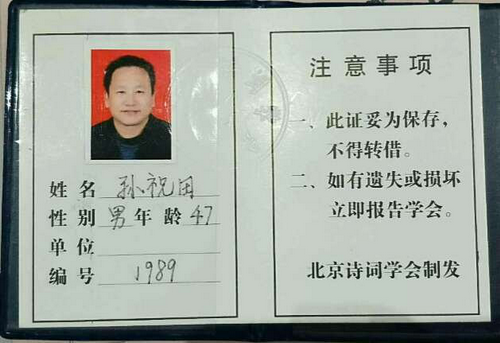 姓名 孙祝田
性别 男 年龄 47
单位
编号 1989
注意事项
一、此证妥为保存，
不得转借。
二、如有遗失或损坏
立即报告学会。
北京诗词学会制发